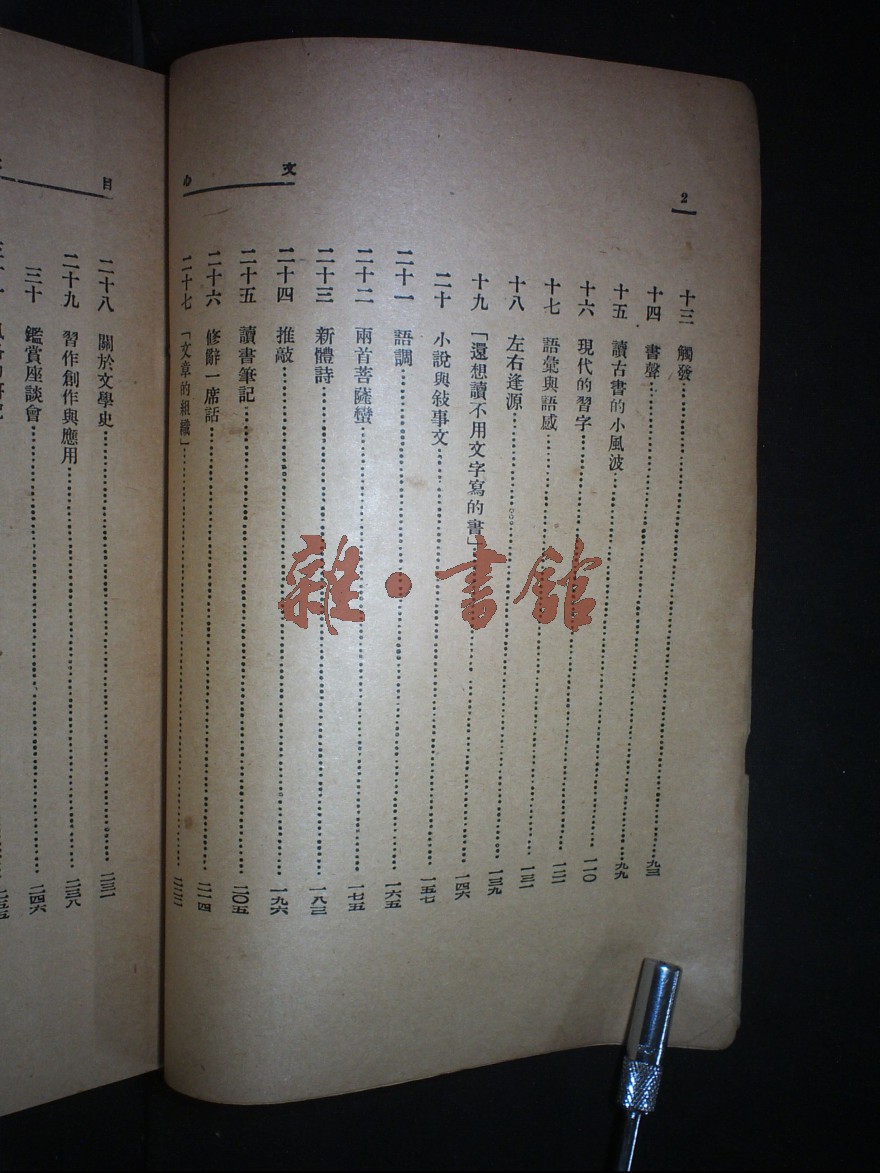 2
文心
十三 觸發……九三
十四 書聲……九九
十五 讀古書的小風波……一一〇
十六 現代的習字……一二一
十七 語彙與語感……一三一
十八 左右逢源……一三九
十九 「還想讀不用文字寫的書」……一四六
二十 小說與敍事文……一五七
二十一 語調……一六五
二十二 兩首菩薩蠻……一七五
二十三 新體詩……一八三
二十四 推敲……一九六
二十五 讀書筆記……二〇五
二十六 修辭一席話……二一四
二十七 「文章的組織」……二二三
目
二十八 關於文學史……二三一
二十九 習作創作與應用……二三八
三十 鑑賞座談會……二四六
雜·書館